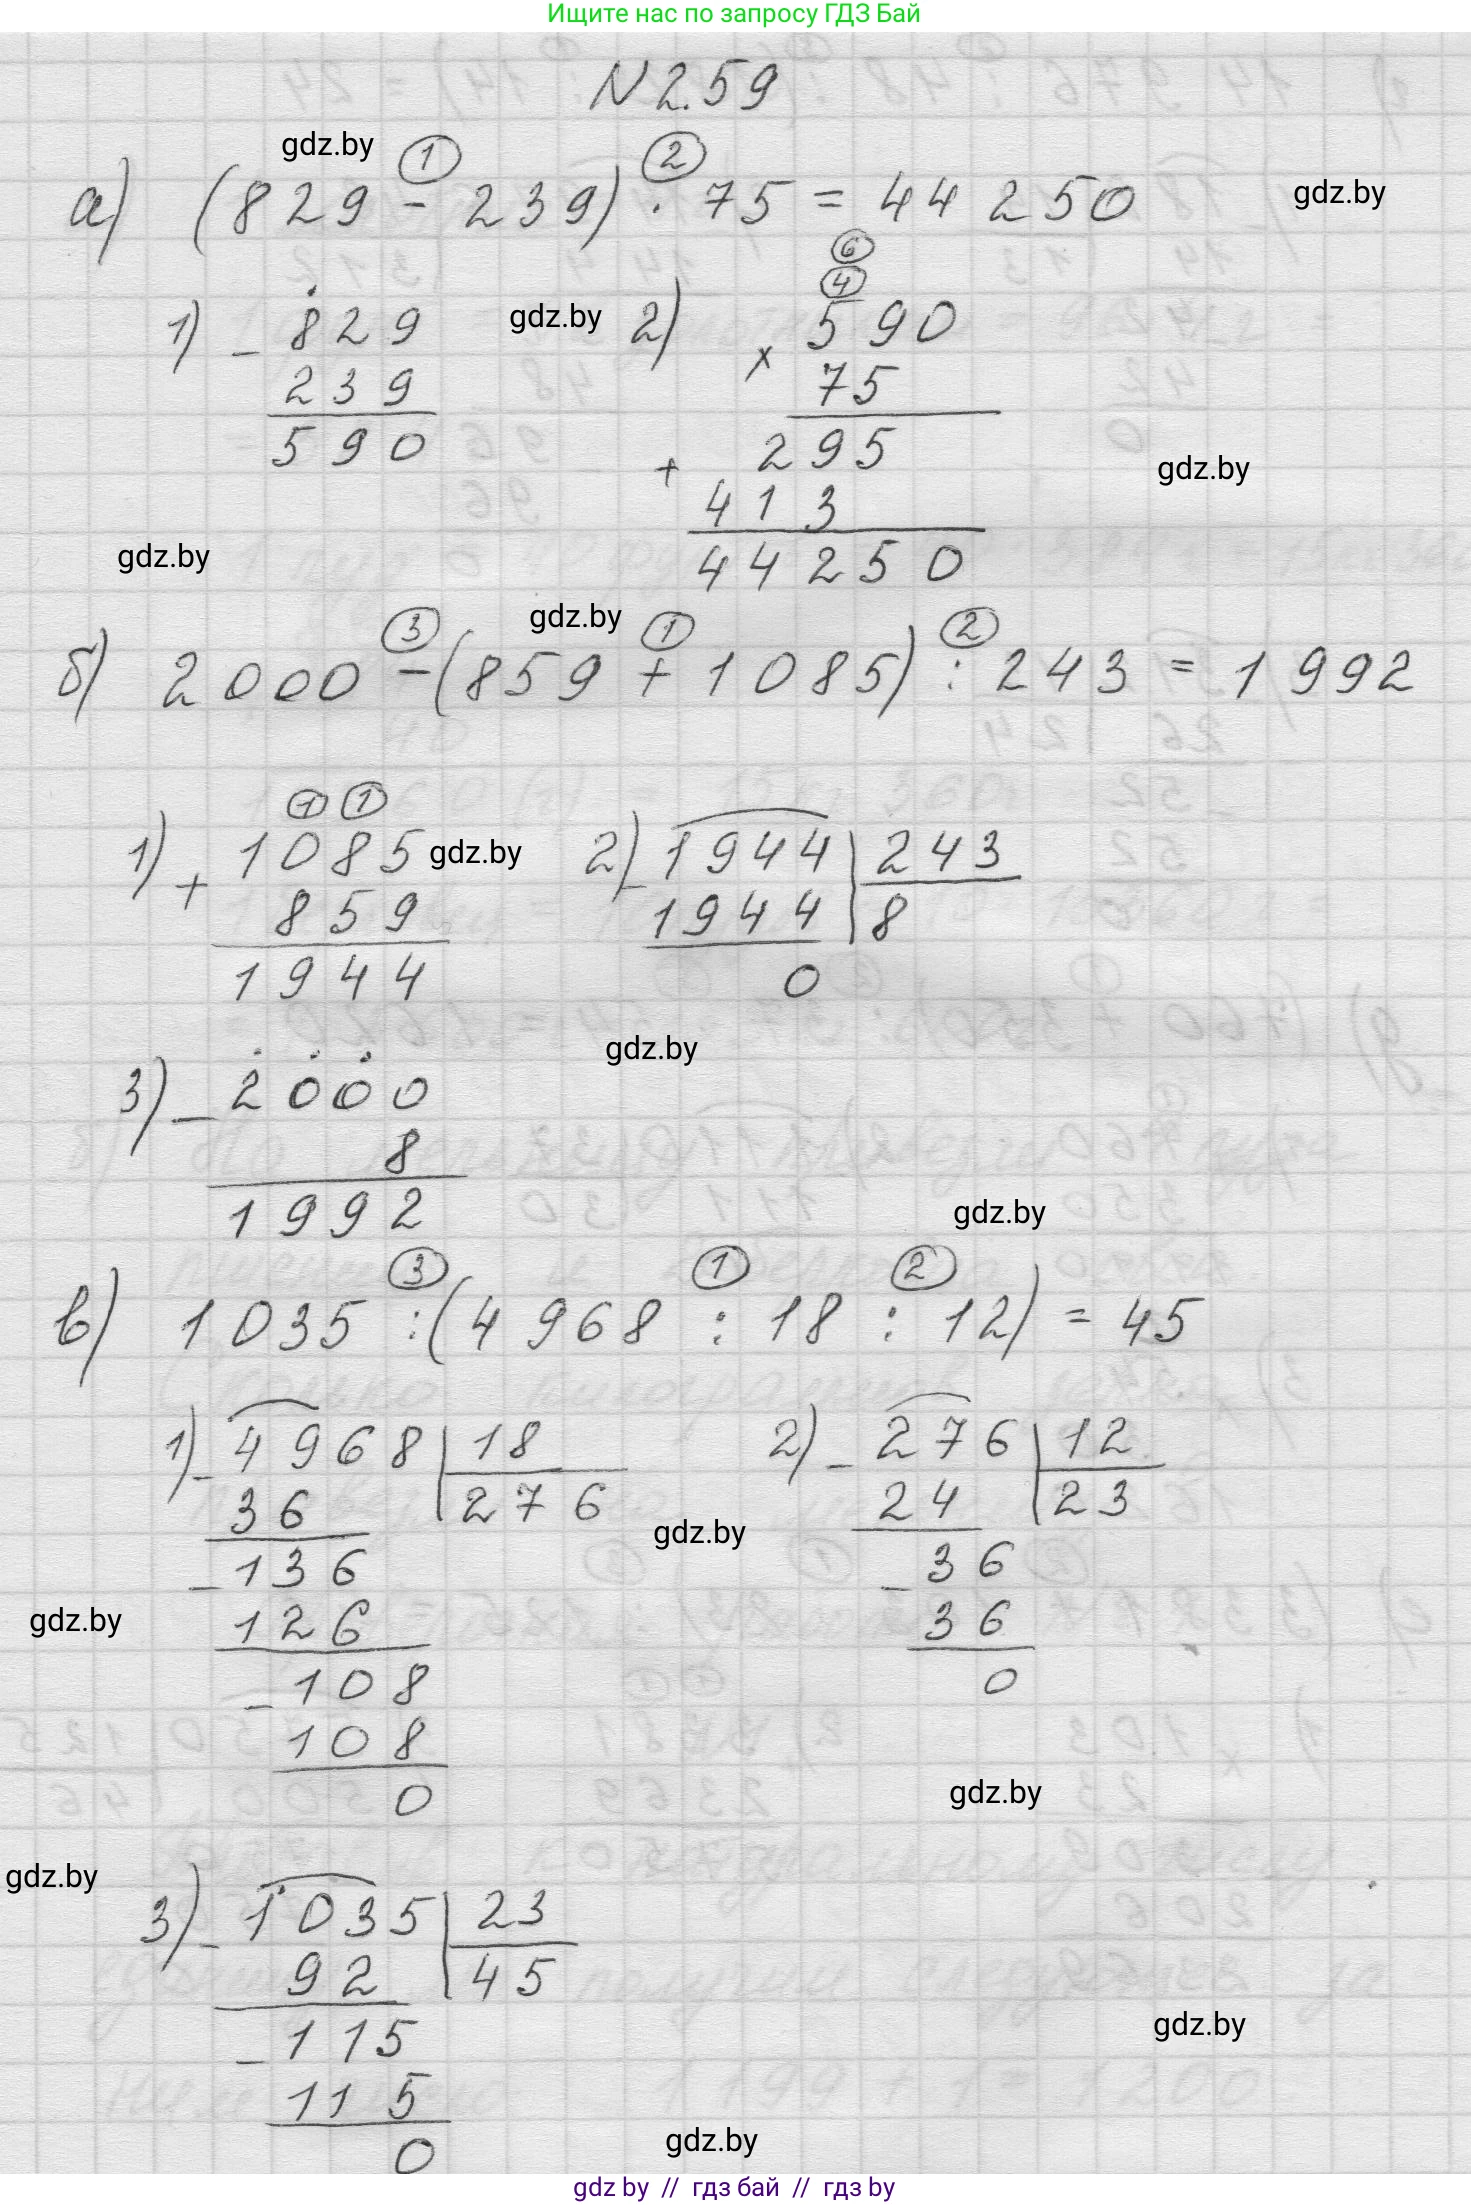 Ищите нас по запросу ГДЗ Бай
N 2.59
gdz.by
1 2
а) (829 - 239) · 75 = 44 250
gdz.by
6
4
1) - 829
239
590
gdz.by
2) x 590
75
+ 295
413
44250
gdz.by
gdz.by
gdz.by
3 1 2
б) 2000 - (859 + 1085) : 243 = 1992
1 1
1) + 1085
859
1944
gdz.by
2) - 1944 | 243
1944 | 8
0
gdz.by
3) - 2000
8
1992
gdz.by
3 1 2
в) 1035 : (4968 : 18 : 12) = 45
1) - 4968 | 18
36 | 276
- 136
126
- 108
108
0
2) - 276 | 12
24 | 23
- 36
36
0
gdz.by
gdz.by
gdz.by
gdz.by
3) - 1035 | 23
92 | 45
- 115
115
0
gdz.by
gdz.by
gdz by // гдз бай // гдз by